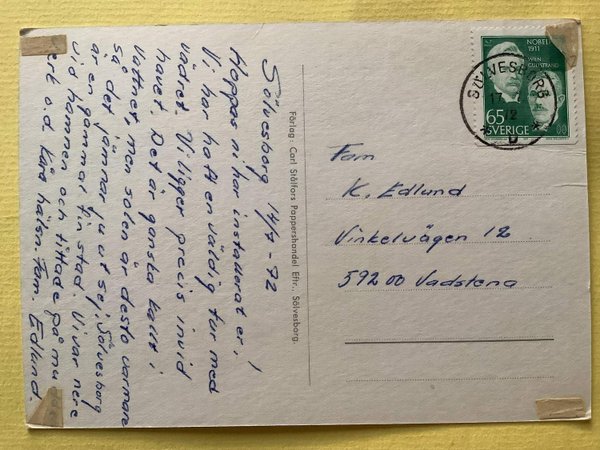 Sölvesborg 14/7-72
Hoppas ni har installerat er,
Vi har haft en väldig tur med
vädret. Vi ligger precis invid
havet. Det är ganska kallt i
vattnet, men solen är desto varmare
så det jämnar ju ut sej, Sölvesborg
är en gammal fin stad. Vi var nere
vid hamnen och tittade på
o.d. Kära hälsn. Fam. Edlund.
Förlag: Carl Stålfors Pappershandel Eftr., Sölvesborg.
NOBEL
1911
WIEN
GULLSTRAND
65
SVERIGE
SÖLVESBORG
17
72
Fam
K. Edlund
Vinkelvägen 12
592 00 Vadstena